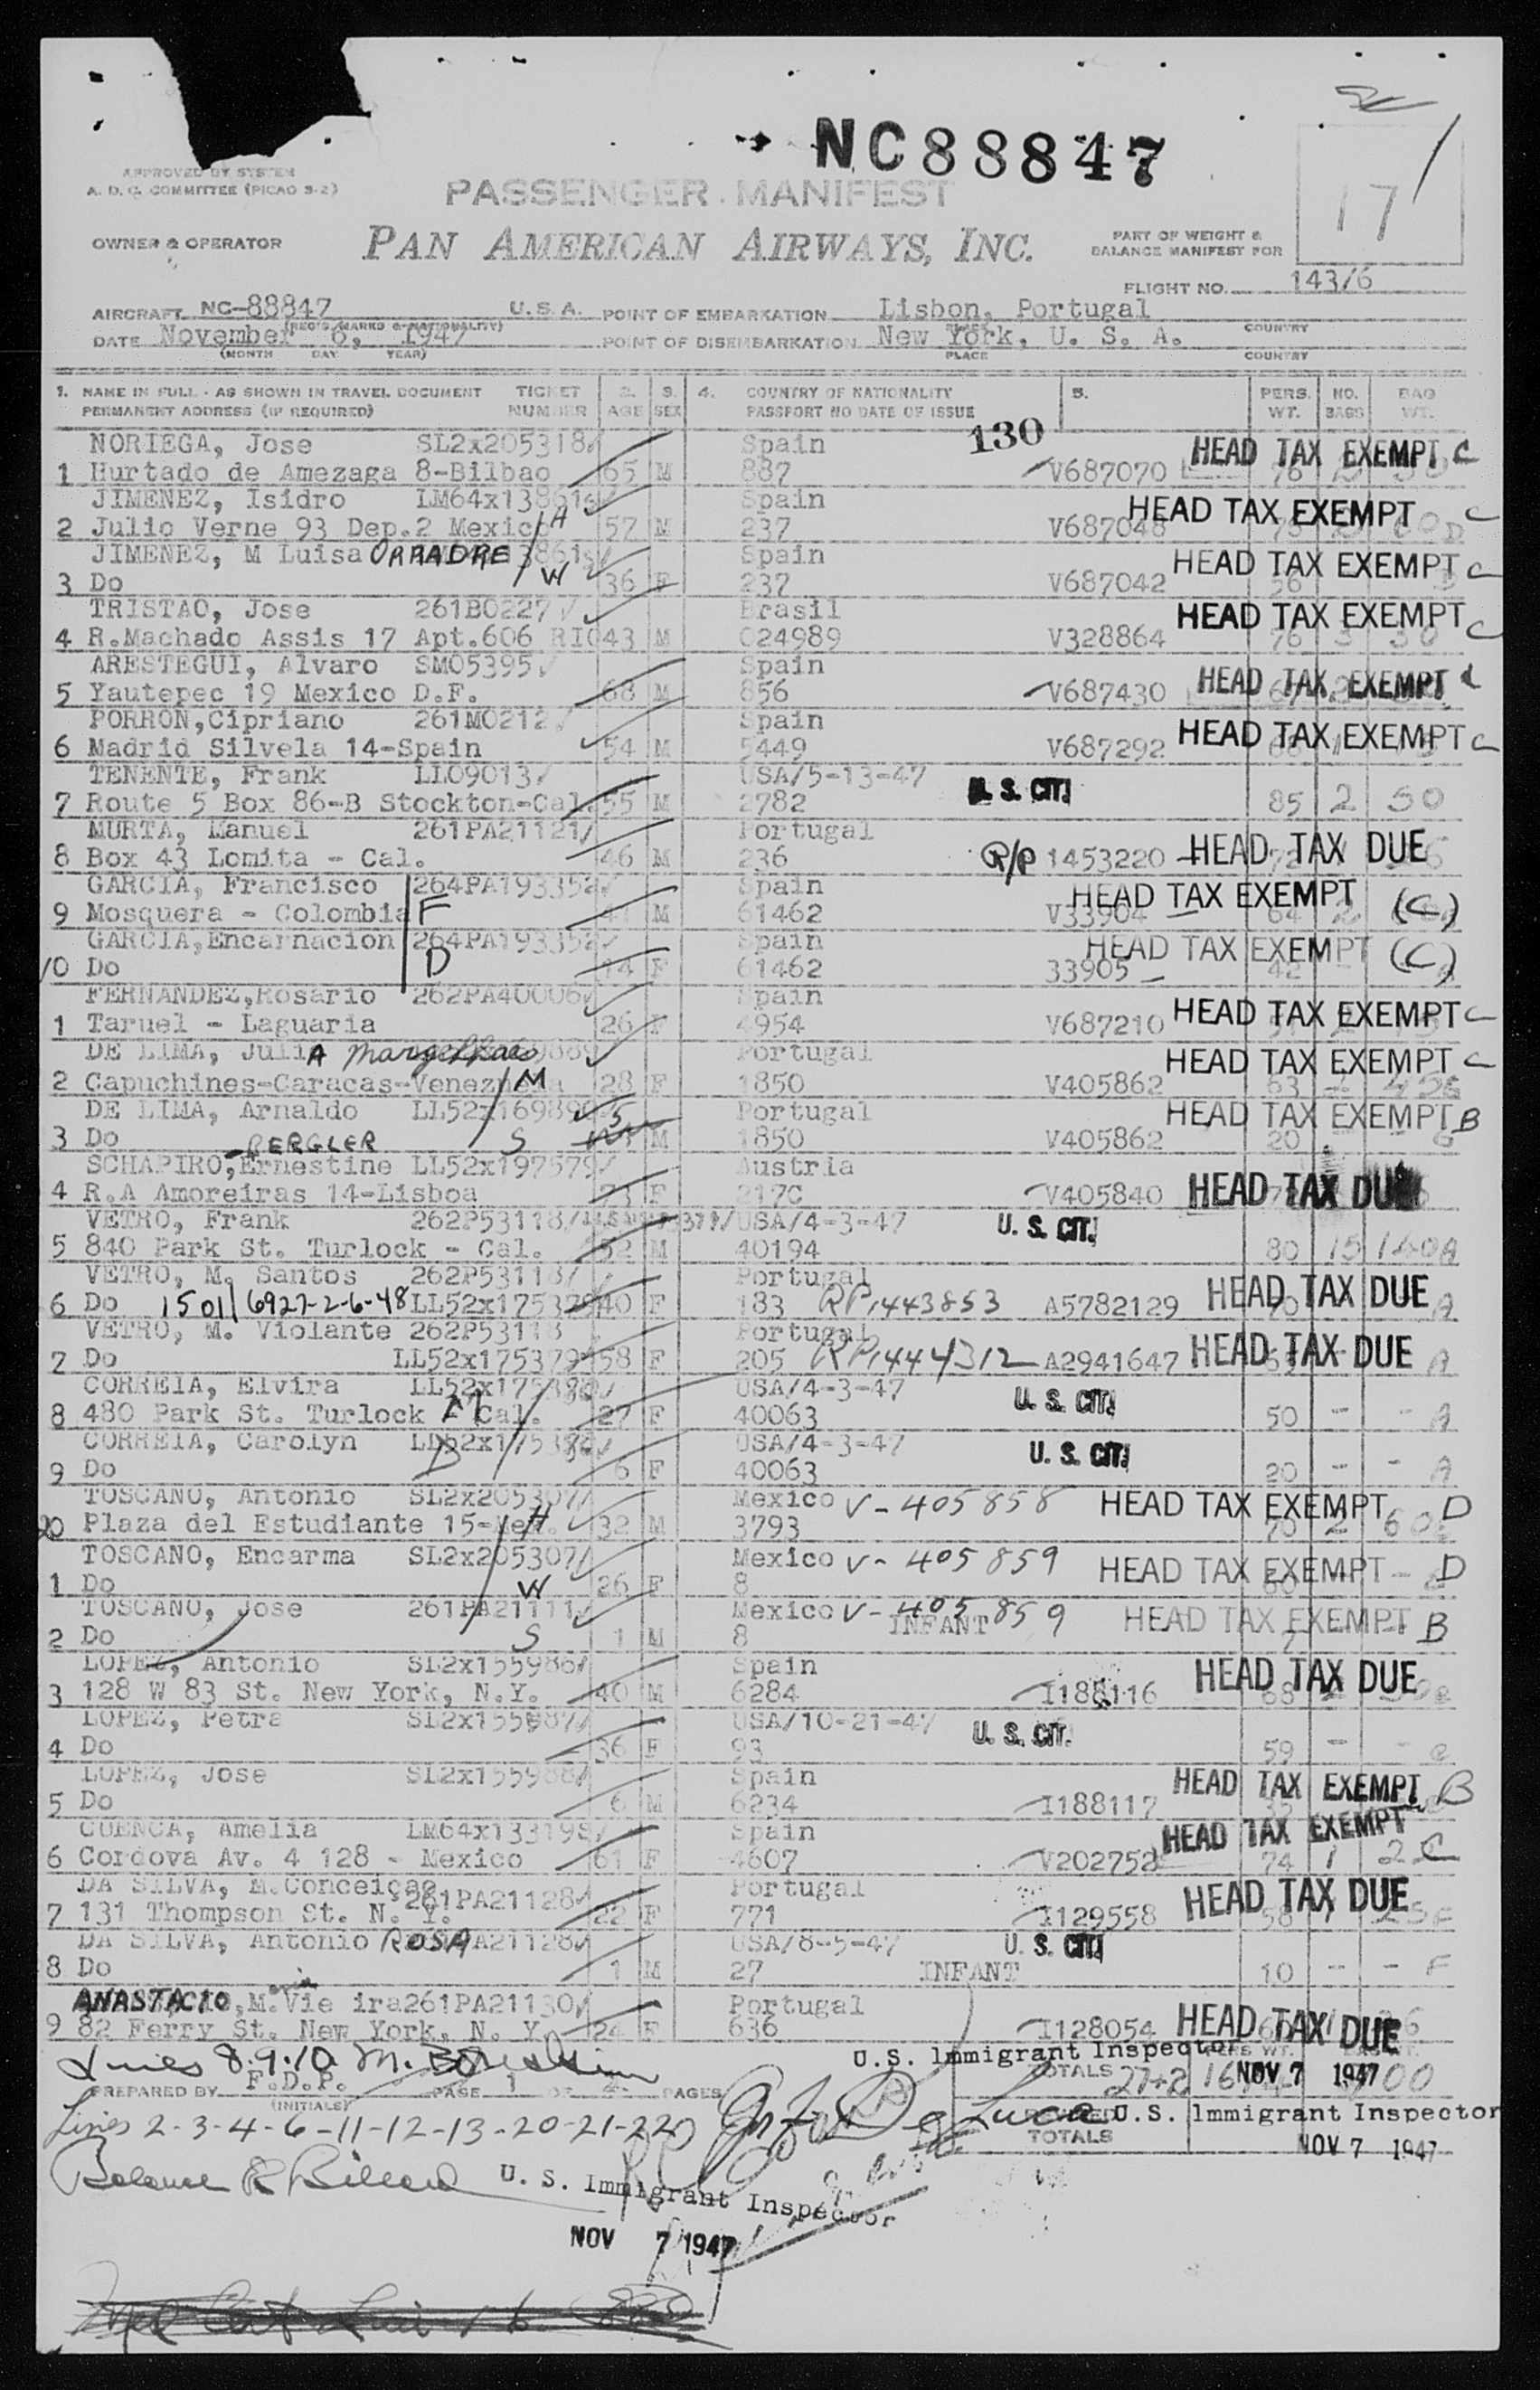 NC88847
APPROVED BY SYSTEM
A. D. C. COMMITTEE (PICAO S-2)
PASSENGER MANIFEST
17
OWNER & OPERATOR
PAN AMERICAN AIRWAYS, INC.
PART OF WEIGHT &
BALANCE MANIFEST FOR
FLIGHT NO. 143/6
AIRCRAFT NC-88847 U.S.A. POINT OF EMBARKATION Lisbon, Portugal
(REG'S MARKS & NATIONALITY) PLACE COUNTRY
DATE November 6, 1947 POINT OF DISEMBARKATION New York, U. S. A.
(MONTH DAY YEAR) PLACE COUNTRY
1. NAME IN FULL - AS SHOWN IN TRAVEL DOCUMENT TICKET 2. 3. 4. COUNTRY OF NATIONALITY 5. PERS. NO. BAG
PERMANENT ADDRESS (IF REQUIRED) NUMBER AGE SEX PASSPORT NO DATE OF ISSUE WT. BAGS WT.
130
NORIEGA, Jose SL2x205318 Spain HEAD TAX EXEMPT C
1 Hurtado de Amezaga 8-Bilbao 65 M 887 V687070 76
JIMENEZ, Isidro LM64x13861 Spain HEAD TAX EXEMPT C
2 Julio Verne 93 Dep.2 Mexico H 57 M 237 V687048
JIMENEZ, M Luisa ORRADRE Spain HEAD TAX EXEMPT C
3 Do W 36 F 237 V687042 56
TRISTAO, Jose 261B0227 Brasil HEAD TAX EXEMPT C
4 R.Machado Assis 17 Apt.606 RIO 43 M 024989 V328864 76 3 30
ARESTEGUI, Alvaro SM05395 Spain HEAD TAX EXEMPT C
5 Yautepec 19 Mexico D.F. 68 M 856 V687430
PORRON,Cipriano 261M0212 Spain HEAD TAX EXEMPT C
6 Madrid Silvela 14-Spain 54 M 5449 V687292
TENENTE, Frank LL09013 USA/5-13-47 U. S. CIT.
7 Route 5 Box 86-B Stockton-Cal. 55 M 2782 85 2 50
MURTA, Manuel 261PA21121 Portugal HEAD TAX DUE
8 Box 43 Lomita - Cal. 46 M 236 R/P 1453220
GARCIA, Francisco 264PA193352 Spain HEAD TAX EXEMPT (C)
9 Mosquera - Colombia F 41 M 61462 V33904 64 2
GARCIA,Encarnacion 264PA193352 Spain HEAD TAX EXEMPT (C)
10 Do D 14 F 61462 33905 42
FERNANDEZ,Rosario 262PA40006 Spain HEAD TAX EXEMPT C
1 Taruel - Laguaria 26 F 4954 V687210
DE LIMA, JuliA Portugal HEAD TAX EXEMPT C
2 Capuchines-Caracas-Venezuela M 28 F 1850 V405862 63
DE LIMA, Arnaldo LL52x169890 Portugal HEAD TAX EXEMPT B
3 Do S M 1850 V405862 20
BERGLER
SCHAPIRO,Ernestine LL52x197579 Austria HEAD TAX DUE
4 R.A Amoreiras 14-Lisboa 73 F 217C V405840
VETRO, Frank 262P53118 USA/4-3-47 U. S. CIT.
5 840 Park St. Turlock - Cal. 52 M 40194 80 15 140A
VETRO, M. Santos 262P53118 Portugal HEAD TAX DUE
6 Do 1501/6927-2-6-48 LL52x175379 40 F 183 RP,1443853 A5782129 A
VETRO, M. Violante 262P53118 Portugal HEAD TAX DUE
7 Do LL52x175379 58 F 205 RP,1444312 A2941647 A
CORREIA, Elvira LL52x175380 USA/4-3-47 U. S. CIT.
8 480 Park St. Turlock - Cal. M 27 F 40063 50 - - A
CORREIA, Carolyn LL52x175380 USA/4-3-47 U. S. CIT.
9 Do D 6 F 40063 20 - - A
TOSCANO, Antonio SL2x205307 Mexico V-405858 HEAD TAX EXEMPT D
20 Plaza del Estudiante 15-Mex. H 32 M 3793 70 2 60
TOSCANO, Encarma SL2x205307 Mexico V-405859 HEAD TAX EXEMPT D
1 Do W 26 F 8 60
TOSCANO, Jose 261PA21111 Mexico V-405859 INFANT HEAD TAX EXEMPT B
2 Do S 1 M 8
LOPEZ, Antonio SL2x155986 Spain HEAD TAX DUE
3 128 W 83 St. New York, N.Y. 40 M 6284 I188116 68
LOPEZ, Petra SL2x155987 USA/10-21-47 U. S. CIT.
4 Do 36 F 93 59 - -
LOPEZ, Jose SL2x155988 Spain HEAD TAX EXEMPT B
5 Do 6 M 6234 I188117
CUENCA, Amelia LM64x133198 Spain HEAD TAX EXEMPT C
6 Cordova Av. 4 128 - Mexico 61 F 4607 V202752 74 1
DA SILVA, M.Conceiçao 261PA21128 Portugal HEAD TAX DUE
7 131 Thompson St. N. Y. 22 F 771 I129558 58 1
DA SILVA, Antonio ROSA PA21128 USA/8-5-47 U. S. CIT.
8 Do 1 M 27 INFANT 10 - - F
ANASTACIO,M.Vie ira 261PA21130 Portugal HEAD TAX DUE
9 82 Ferry St. New York, N. Y. 24 F 636 I128054
Lines 8.9.10 M.
U.S. Immigrant Inspector
NOV 7 1947
PREPARED BY F.D.P. PAGE 1 OF PAGES TOTALS
(INITIALS)
Lines 2-3-4-6-11-12-13-20-21-22 De Luca U.S. Immigrant Inspector
TOTALS
NOV 7 1947
U. S. Immigrant Inspector
NOV 7 1947